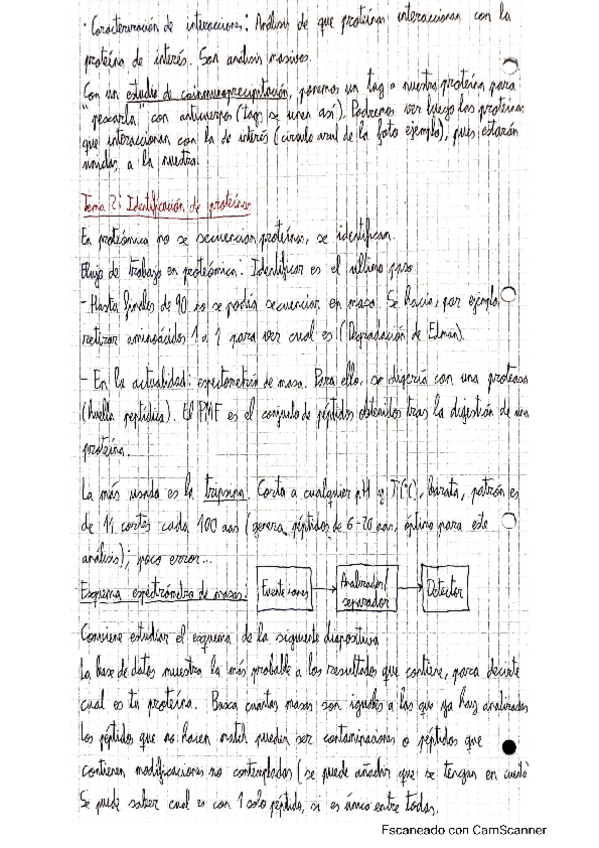 · Caracterización de interacciones: Análisis de que proteínas interaccionan con la
proteína de interés. Son análisis masivos.
Con un estudio de coinmunoprecipitación, ponemos un tag a nuestra proteína para
"pescarla" con anticuerpos (tags se unen así). Podremos ver luego las proteínas
que interaccionan con la de interés (círculo azul de la foto ejemplo), pues estarán
unidas a la nuestra.
Tema 2: Identificación de proteínas
En proteómica no se secuencian proteínas, se identifican.
Flujo de trabajo en proteómica: Identificar es el último paso
- Hasta finales de 90 no se podía secuenciar en masa. Se hacía, por ejemplo,
retirar aminoácidos 1 a 1 para ver cual es (Degradación de Edman).
- En la actualidad: espectrometría de masa. Para ello, se digería con una proteasa
(huella peptídica). El PMF es el conjunto de péptidos obtenidos tras la digestión de una
proteína.
La más usada es la tripsina. Corta a cualquier pH y T(ºC), barata, patrón es
de 11 cortes cada 100 aas (genera péptidos de 6-20 aas, óptimo para este
análisis); poco error...
Esquema espectrómetro de masas: Fuente iones → Analizador/separador → Detector
Conviene estudiar el esquema de la siguiente diapositiva
La base de datos muestra la más probable a los resultados que contiene, para decirte
cual es tu proteína. Busca cuantas masas son iguales a las que ya hay analizadas
Los péptidos que no hacen match pueden ser contaminaciones o péptidos que
contienen modificaciones no contempladas (se puede añadir que se tengan en cuenta
Se puede saber cual es con 1 solo péptido, si es único entre todas.
Escaneado con CamScanner